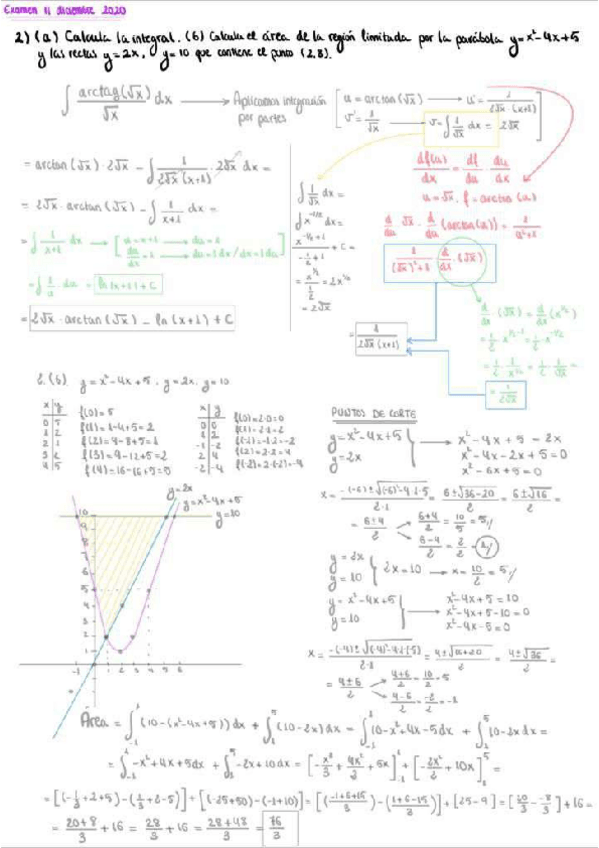 Examen 11 diciembre 2020
2) (a) Calcula la integral. (b) Calcula el área de la región limitada por la parábola y = x² - 4x + 5
y las rectas y = 2x, y = 10 que contiene el punto (2,8).
∫ arctag(√x)/√x dx → Aplicamos integración por partes [ u = arctan(√x) → u' = 1/(2√x·(x+1))
v' = 1/√x → v = ∫ 1/√x dx = 2√x ]
= arctan(√x)·2√x - ∫ 1/(2√x(x+1)) · 2√x dx =
= 2√x·arctan(√x) - ∫ 1/(x+1) dx =
= ∫ 1/(x+1) dx → [ u = x+1 → du = 1
du/dx = 1 → du = 1dx / dx = 1du ]
= ∫ 1/u · du = ln(x+1) + C
= 2√x·arctan(√x) - ln(x+1) + C
∫ 1/√x dx =
∫ x^(-1/2) dx =
x^(-1/2+1)/(-1/2+1) + C =
= x^(1/2)/(1/2) = 2x^(1/2)
= 2√x
df(u)/dx = df/du · du/dx
u = √x, f = arctan(u)
d/dx √x · d/du (arctan(u)) = 1/(u²+1)
1/((√x)²+1) · d/dx (√x)
d/dx (√x) = d/dx (x^(1/2))
= 1/2 · x^(1/2-1) = 1/2 · x^(-1/2)
= 1/2 · 1/x^(1/2) = 1/2 · 1/√x =
= 1/(2√x)
= 1/(2√x(x+1))
2.(b) y = x² - 4x + 5, y = 2x, y = 10
x | y
0 | 5
1 | 2
2 | 1
3 | 2
4 | 5
f(0) = 5
f(1) = 1-4+5 = 2
f(2) = 4-8+5 = 1
f(3) = 9-12+5 = 2
f(4) = 16-16+5 = 5
x | y
0 | 0
1 | 2
-1 | -2
2 | 4
-2 | -4
f(0) = 2·0 = 0
f(1) = 2·1 = 2
f(-1) = 2·(-1) = -2
f(2) = 2·2 = 4
f(-2) = 2·(-2) = -4
PUNTOS DE CORTE
y = x² - 4x + 5
y = 2x
→ x² - 4x + 5 = 2x
x² - 4x - 2x + 5 = 0
x² - 6x + 5 = 0
x = (-(-6) ± √((-6)² - 4·1·5))/(2·1) = (6 ± √(36-20))/2 = (6 ± √16)/2 =
= (6±4)/2
(6+4)/2 = 10/2 = 5//
(6-4)/2 = 2/2 = 1//
y = 2x
y = 10
2x = 10 → x = 10/2 = 5//
y = x² - 4x + 5
y = 10
→ x² - 4x + 5 = 10
x² - 4x + 5 - 10 = 0
x² - 4x - 5 = 0
x = (-(-4) ± √((-4)² - 4·1·(-5)))/(2·1) = (4 ± √(16+20))/2 = (4 ± √36)/2 =
= (4±6)/2
(4+6)/2 = 10/2 = 5
(4-6)/2 = -2/2 = -1
y = 2x
y = x² - 4x + 5
y = 10
10
9
8
7
6
5
4
3
2
1
-1 1 2 3 4 5 6
Área = ∫₋₁¹ (10 - (x² - 4x + 5)) dx + ∫₁⁵ (10 - 2x) dx = ∫₋₁¹ 10 - x² + 4x - 5 dx + ∫₁⁵ 10 - 2x dx =
= ∫₋₁¹ -x² + 4x + 5 dx + ∫₁⁵ -2x + 10 dx = [-x³/3 + 4x²/2 + 5x]₋₁¹ + [-2x²/2 + 10x]₁⁵ =
= [(-1/3 + 2 + 5) - (1/3 + 2 - 5)] + [(-25 + 50) - (-1 + 10)] = [((-1+6+15)/3) - ((1+6-15)/3)] + [25 - 9] = [20/3 - (-8/3)] + 16 =
= (20+8)/3 + 16 = 28/3 + 16 = (28+48)/3 = 76/3